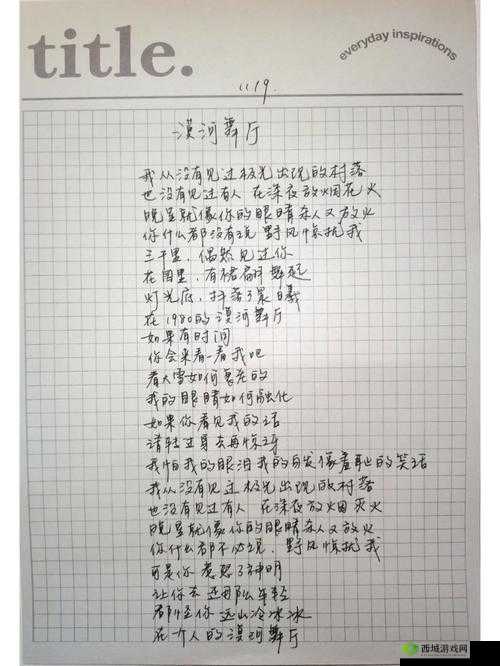 title.
everyday inspirations
11.19.
漠河舞厅
我从没有见过极光出现的村落
也没有见过有人 在深夜放烟花火
晚星就像你的眼睛杀人又放火
你什么都没有说 野风惊扰我
三千里，偶然见过你
花园里，有裙翩舞起
灯光底，抖落了晨曦
在1980的漠河舞厅
如果有时间
你会来看一看我吧
看大雪如何衰老的
我的眼睛如何融化
如果你看见我的话
请转过身去再惊讶
我怕我的眼泪我的白发像羞耻的笑话
我从没有见过极光出现的村落
也没有见过有人 在深夜放烟火
晚星就像你的眼睛杀人又放火
你什么都不必说 野风惊扰我
可是你 惹怒了神明
让你去 还那么年轻
都怪你 远山冷冰冰
在一个人的漠河舞厅
西城游戏网